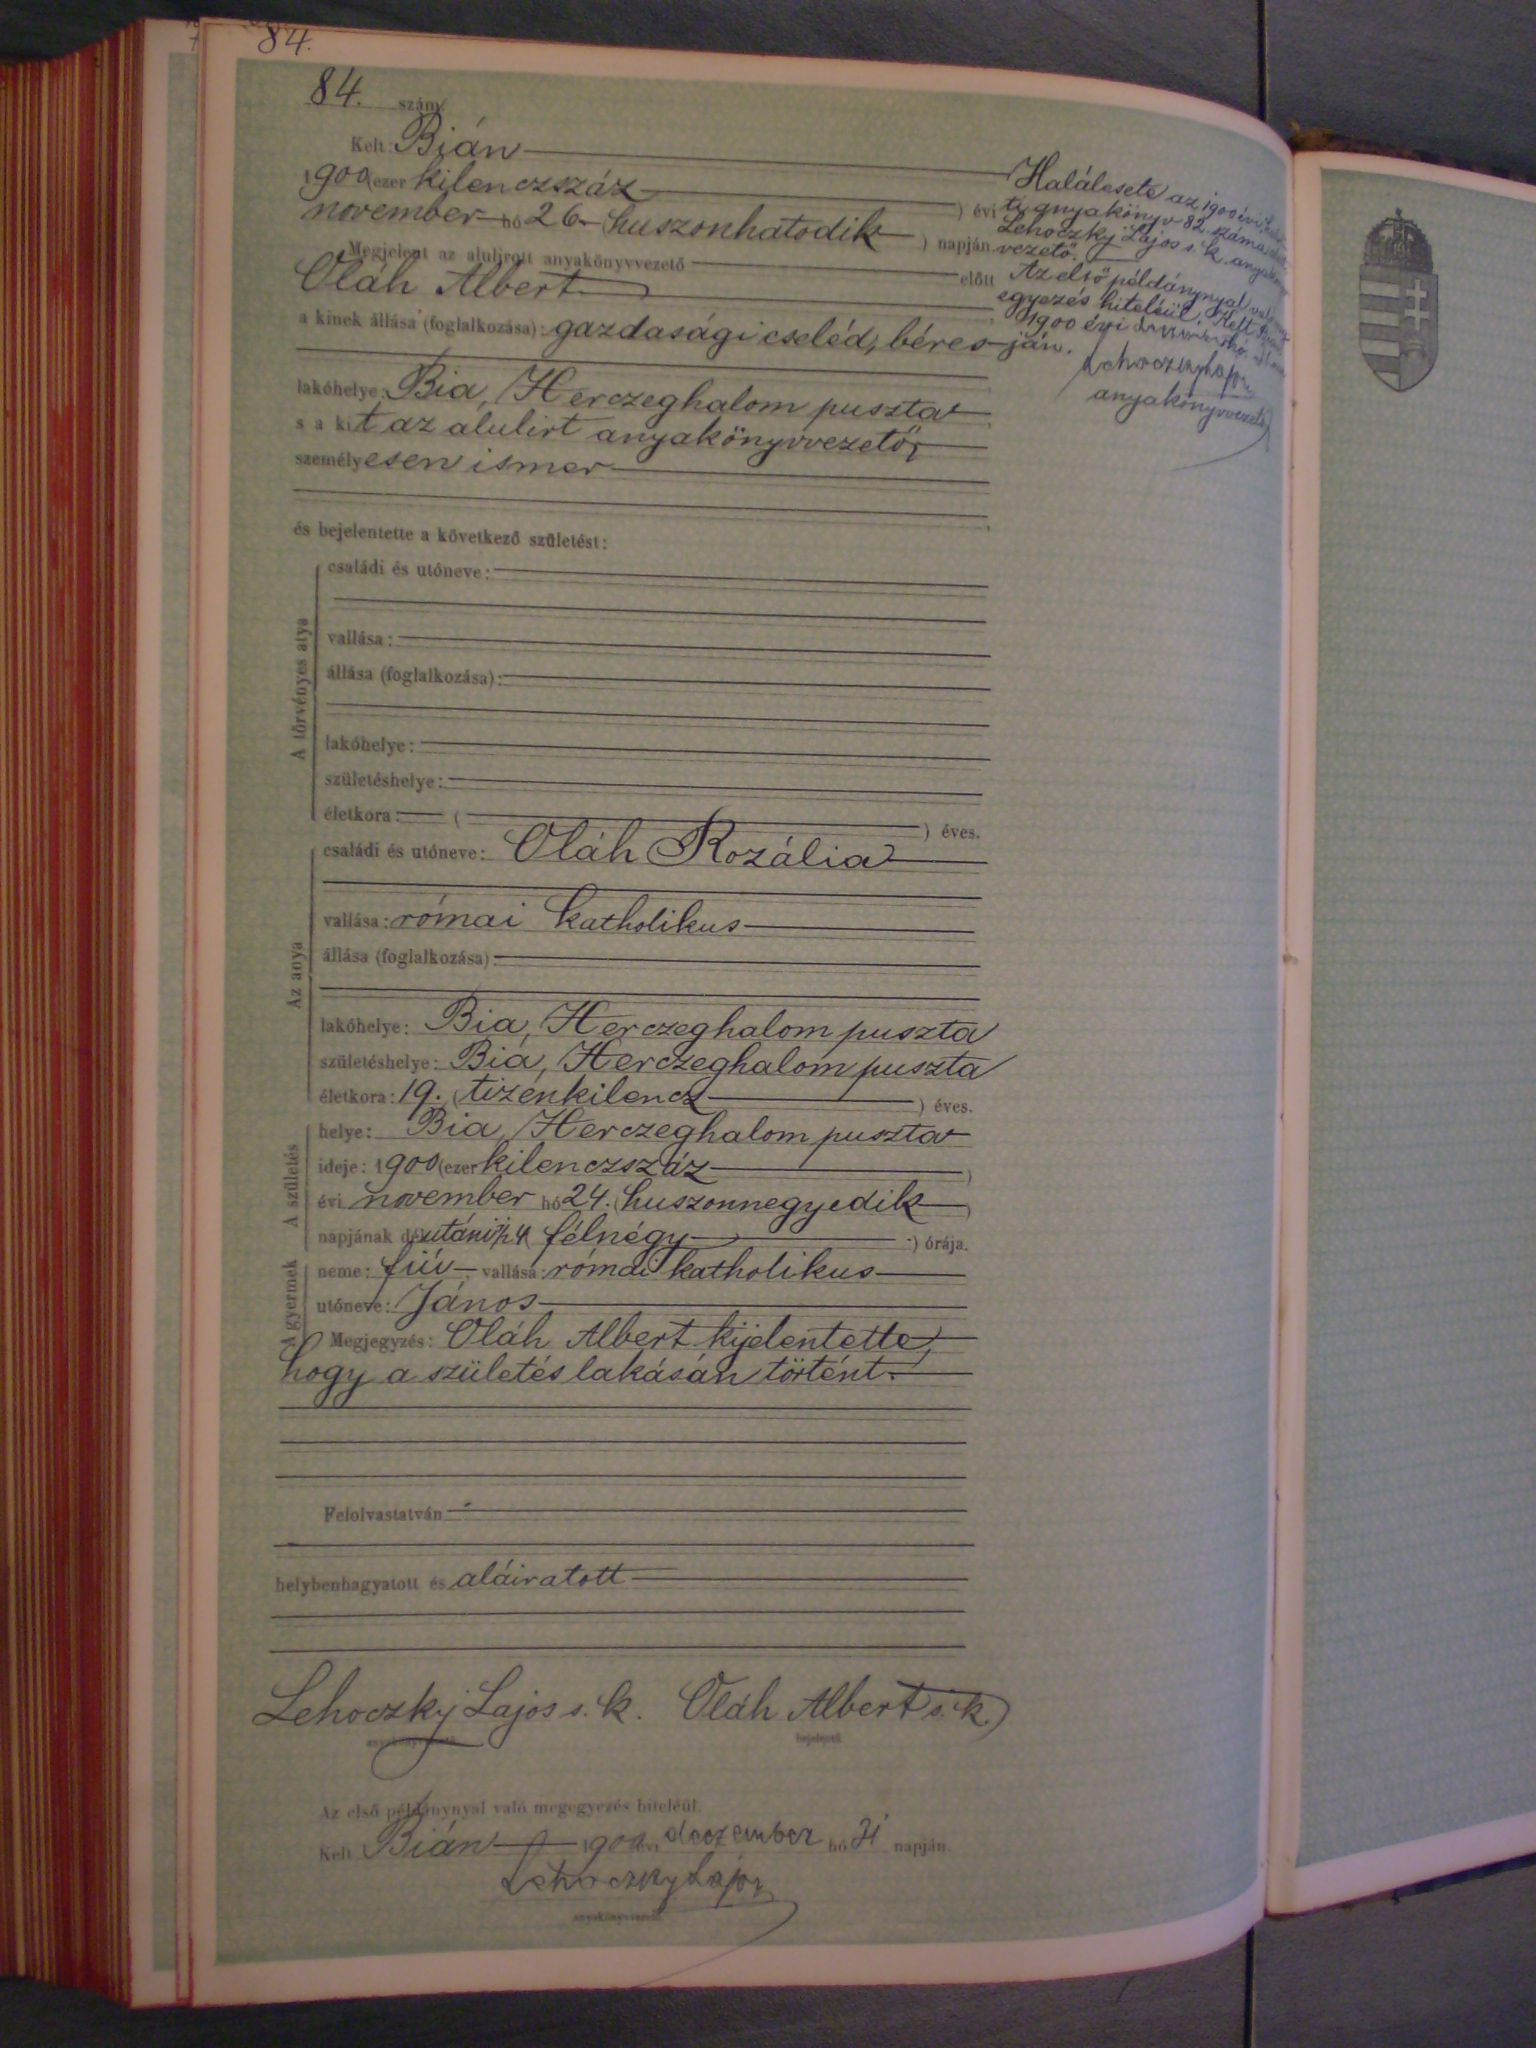 84.
84. szám
Kelt: Bián
1900 (ezer kilenczszáz ) évi
november hó 26. (huszonhatodik ) napján.
Megjelent az alulirott anyakönyvvezető előtt
Oláh Albert
a kinek állása (foglalkozása): gazdasági cseléd, béres
lakóhelye: Bia, Herczeghalom puszta
s a kit az alulirt anyakönyvvezető,
személyesen ismer
és bejelentette a következő születést:
A törvényes atya
családi és utóneve:
vallása:
állása (foglalkozása):
lakóhelye:
születéshelye:
életkora: ( ) éves.
Az anya
családi és utóneve: Oláh Rozália
vallása: római katholikus
állása (foglalkozása)
lakóhelye: Bia, Herczeghalom puszta
születéshelye: Bia, Herczeghalom puszta
életkora: 19. (tizenkilencz ) éves.
A születés
helye: Bia, Herczeghalom puszta
ideje: 1900 (ezer kilenczszáz )
évi november hó 24. (huszonnegyedik )
napjának délutáni ½4 (félnégy ) órája.
A gyermek
neme: fiú vallása: római katholikus
utóneve: János
Megjegyzés: Oláh Albert kijelentette,
hogy a születés lakásán történt.
Felolvastatván
helybenhagyatott és aláiratott
Lehoczky Lajos s. k. Oláh Albert s. k.
anyakönyvvezető. bejelentő.
Az első példánynyal való megegyezés hiteléül.
Kelt Bián 1900 évi deczember hó 31 napján.
Lehoczky Lajos
anyakönyvvezető.
Halálesete az 1900 évi
ti anyakönyv 82. száma
Lehoczky Lajos s. k. anyakönyv
vezető.
Az első példánynyal
egyezés hiteléül. Kelt
1900 évi
ján.
Lehoczky Lajos
anyakönyvvezető